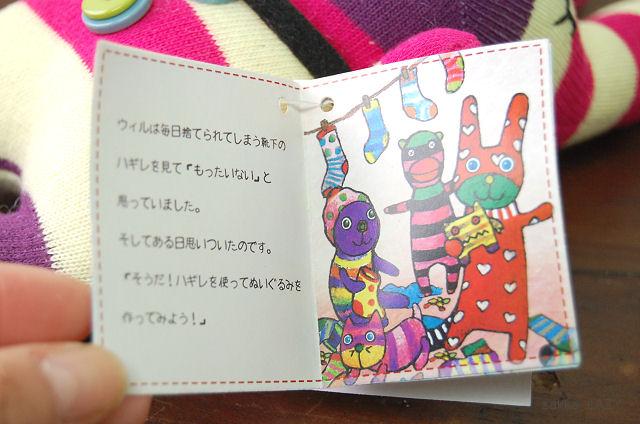 ウィルは毎日捨てられてしまう靴下の
ハギレを見て「もったいない」と
思っていました。
そしてある日思いついたのです。
「そうだ！ハギレを使ってぬいぐるみを
作ってみよう！」